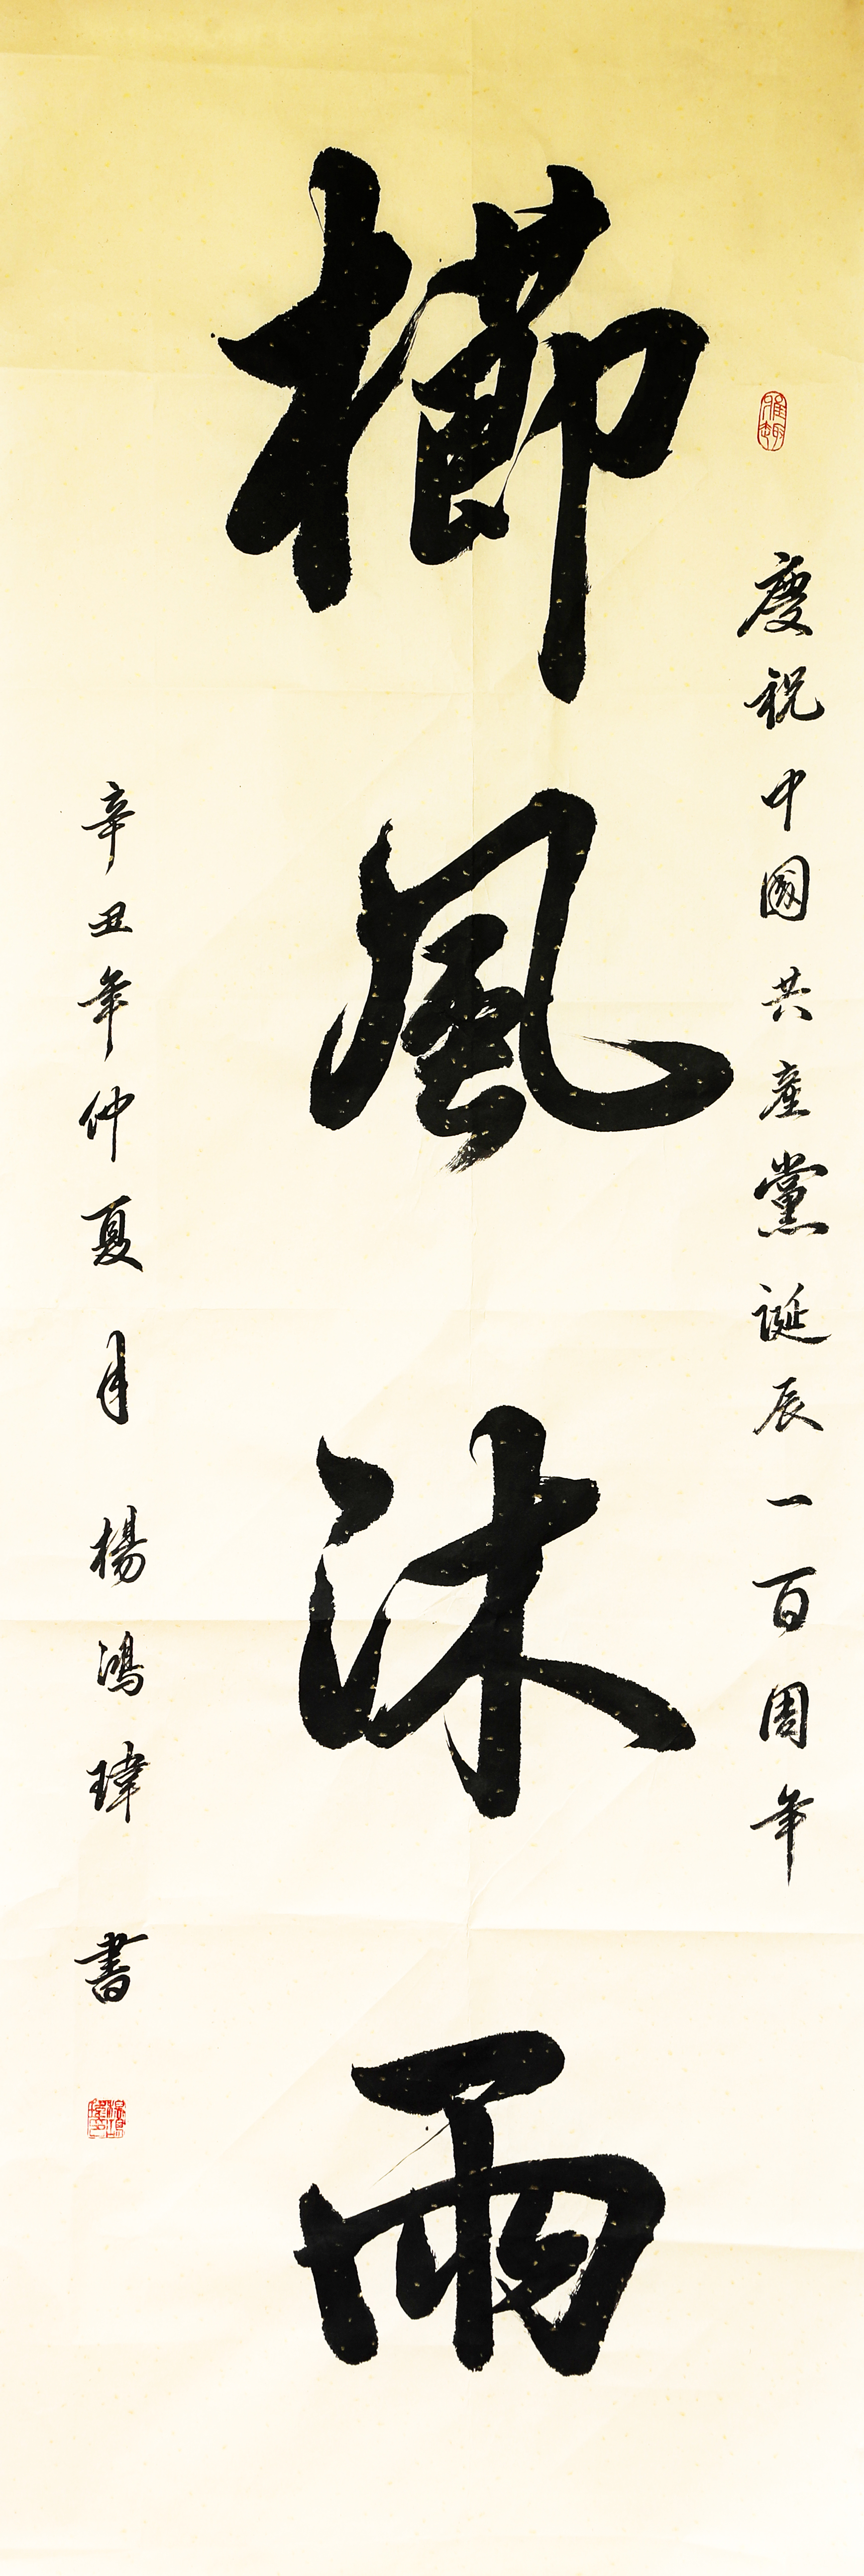 雅趣
慶祝中國共產黨誕辰一百周年
櫛風沐雨
辛丑年仲夏月 楊鴻瑋 書